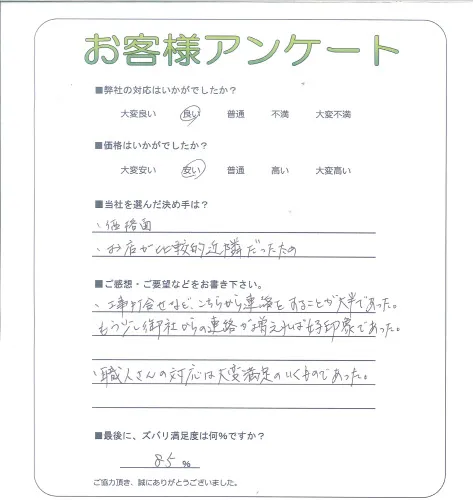 お客様アンケート
■弊社の対応はいかがでしたか?
大変良い 良い 普通 不満 大変不満
■価格はいかがでしたか?
大変安い 安い 普通 高い 大変高い
■当社を選んだ決め手は?
、価格面
、お店が比較的近隣だったため
■ご感想・ご要望などをお書き下さい。
、工事打合せなど、こちらから連絡をすることが大半であった。
もう少し御社からの連絡が増えれば好印象であった。
、職人さんの対応は大変満足のいくものであった。
■最後に、ズバリ満足度は何%ですか?
85 %
ご協力頂き、誠にありがとうございました。